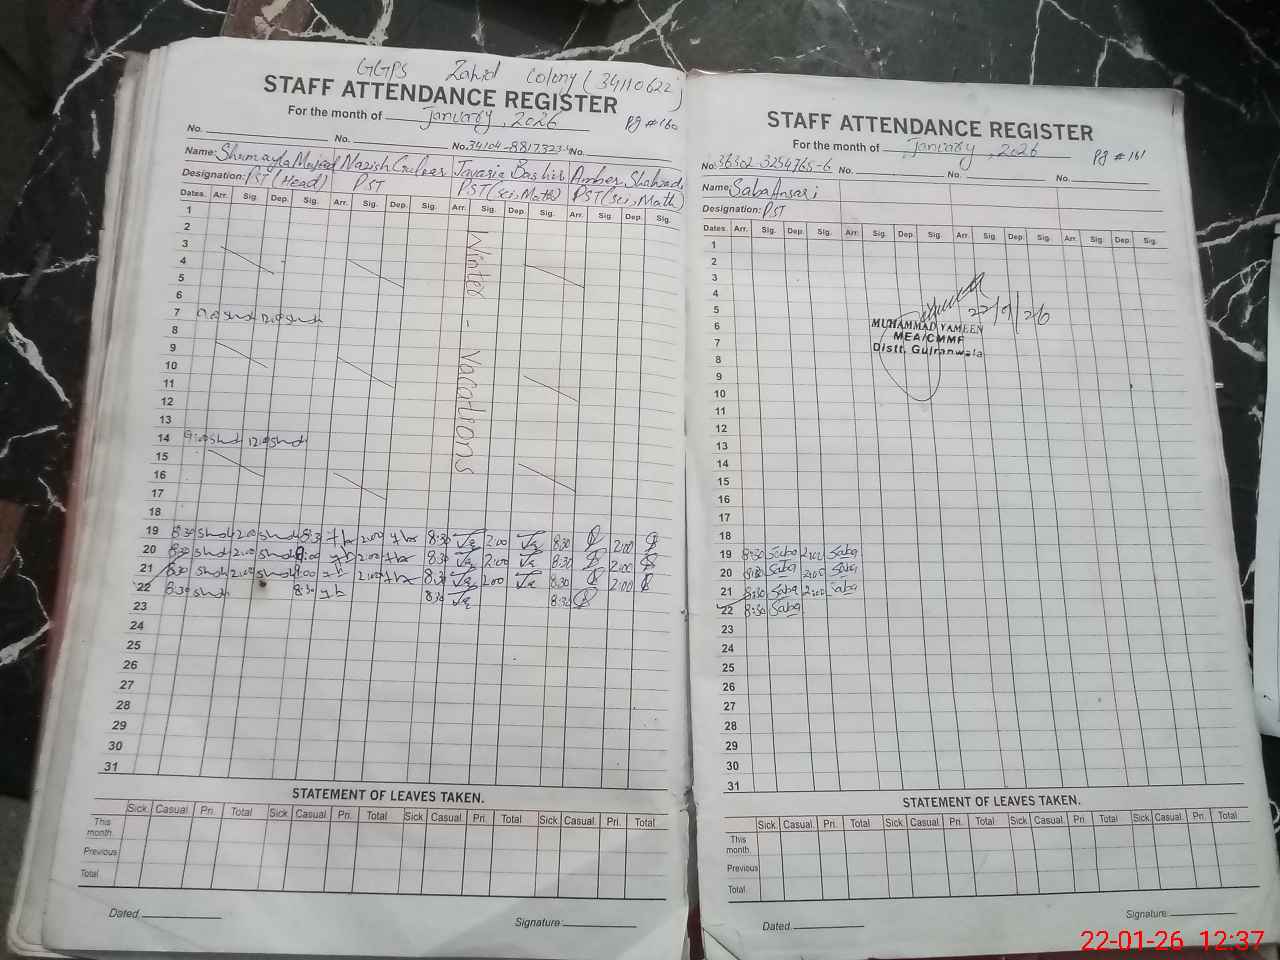 GGPS Zahid Colony (34110622)
STAFF ATTENDANCE REGISTER
For the month of January, 2026 Pg # 160
No. No. No. 34104-8817323- No.
Name: Shumayla Majeed Nazish Javaria Bashir Amber Shahzad
Designation: PST (Head) PST PST (Sci, Math) PST (Sci, Math)
Dates. Arr. Sig. Dep. Sig. Arr. Sig. Dep. Sig. Arr. Sig. Dep. Sig. Arr. Sig. Dep. Sig.
1
2
3
4
5
6
7 9:00 12:00
8
9
10
11
12
13
14 9:00 12:00
15
16
17
18
Winter - Vacations
19 8:30 2:00 8:30 2:00 8:30 2:00 8:30 2:00
20 8:30 2:00 9:00 2:00 8:30 2:00 8:30 2:00
21 8:30 2:00 9:00 2:00 8:30 2:00 8:30 2:00
22 8:30 8:30 8:30 8:30
23
24
25
26
27
28
29
30
31
STATEMENT OF LEAVES TAKEN.
Sick. Casual. Pri. Total Sick. Casual. Pri. Total Sick. Casual. Pri. Total Sick. Casual. Pri. Total
This month.
Previous
Total
Dated. Signature:
STAFF ATTENDANCE REGISTER
For the month of January, 2026 Pg # 161
No. 36302-3254765-6 No. No. No.
Name: Saba Ansari
Designation: PST
Dates. Arr. Sig. Dep. Sig. Arr. Sig. Dep. Sig. Arr. Sig. Dep. Sig. Arr. Sig. Dep. Sig.
1
2
3
4
5
6
7
8
9
10
11
12
13
14
15
16
17
18
22/1/26
MUHAMMAD YAMEEN
MEA/CMMF
Distt. Gujranwala
19 8:30 Saba 2:00 Saba
20 8:30 Saba 2:00 Saba
21 8:30 Saba 2:00 Saba
22 8:30 Saba
23
24
25
26
27
28
29
30
31
STATEMENT OF LEAVES TAKEN.
Sick. Casual. Pri. Total Sick. Casual. Pri. Total Sick. Casual. Pri. Total Sick. Casual. Pri. Total
This month.
Previous
Total
Dated. Signature:
22-01-26 12:37